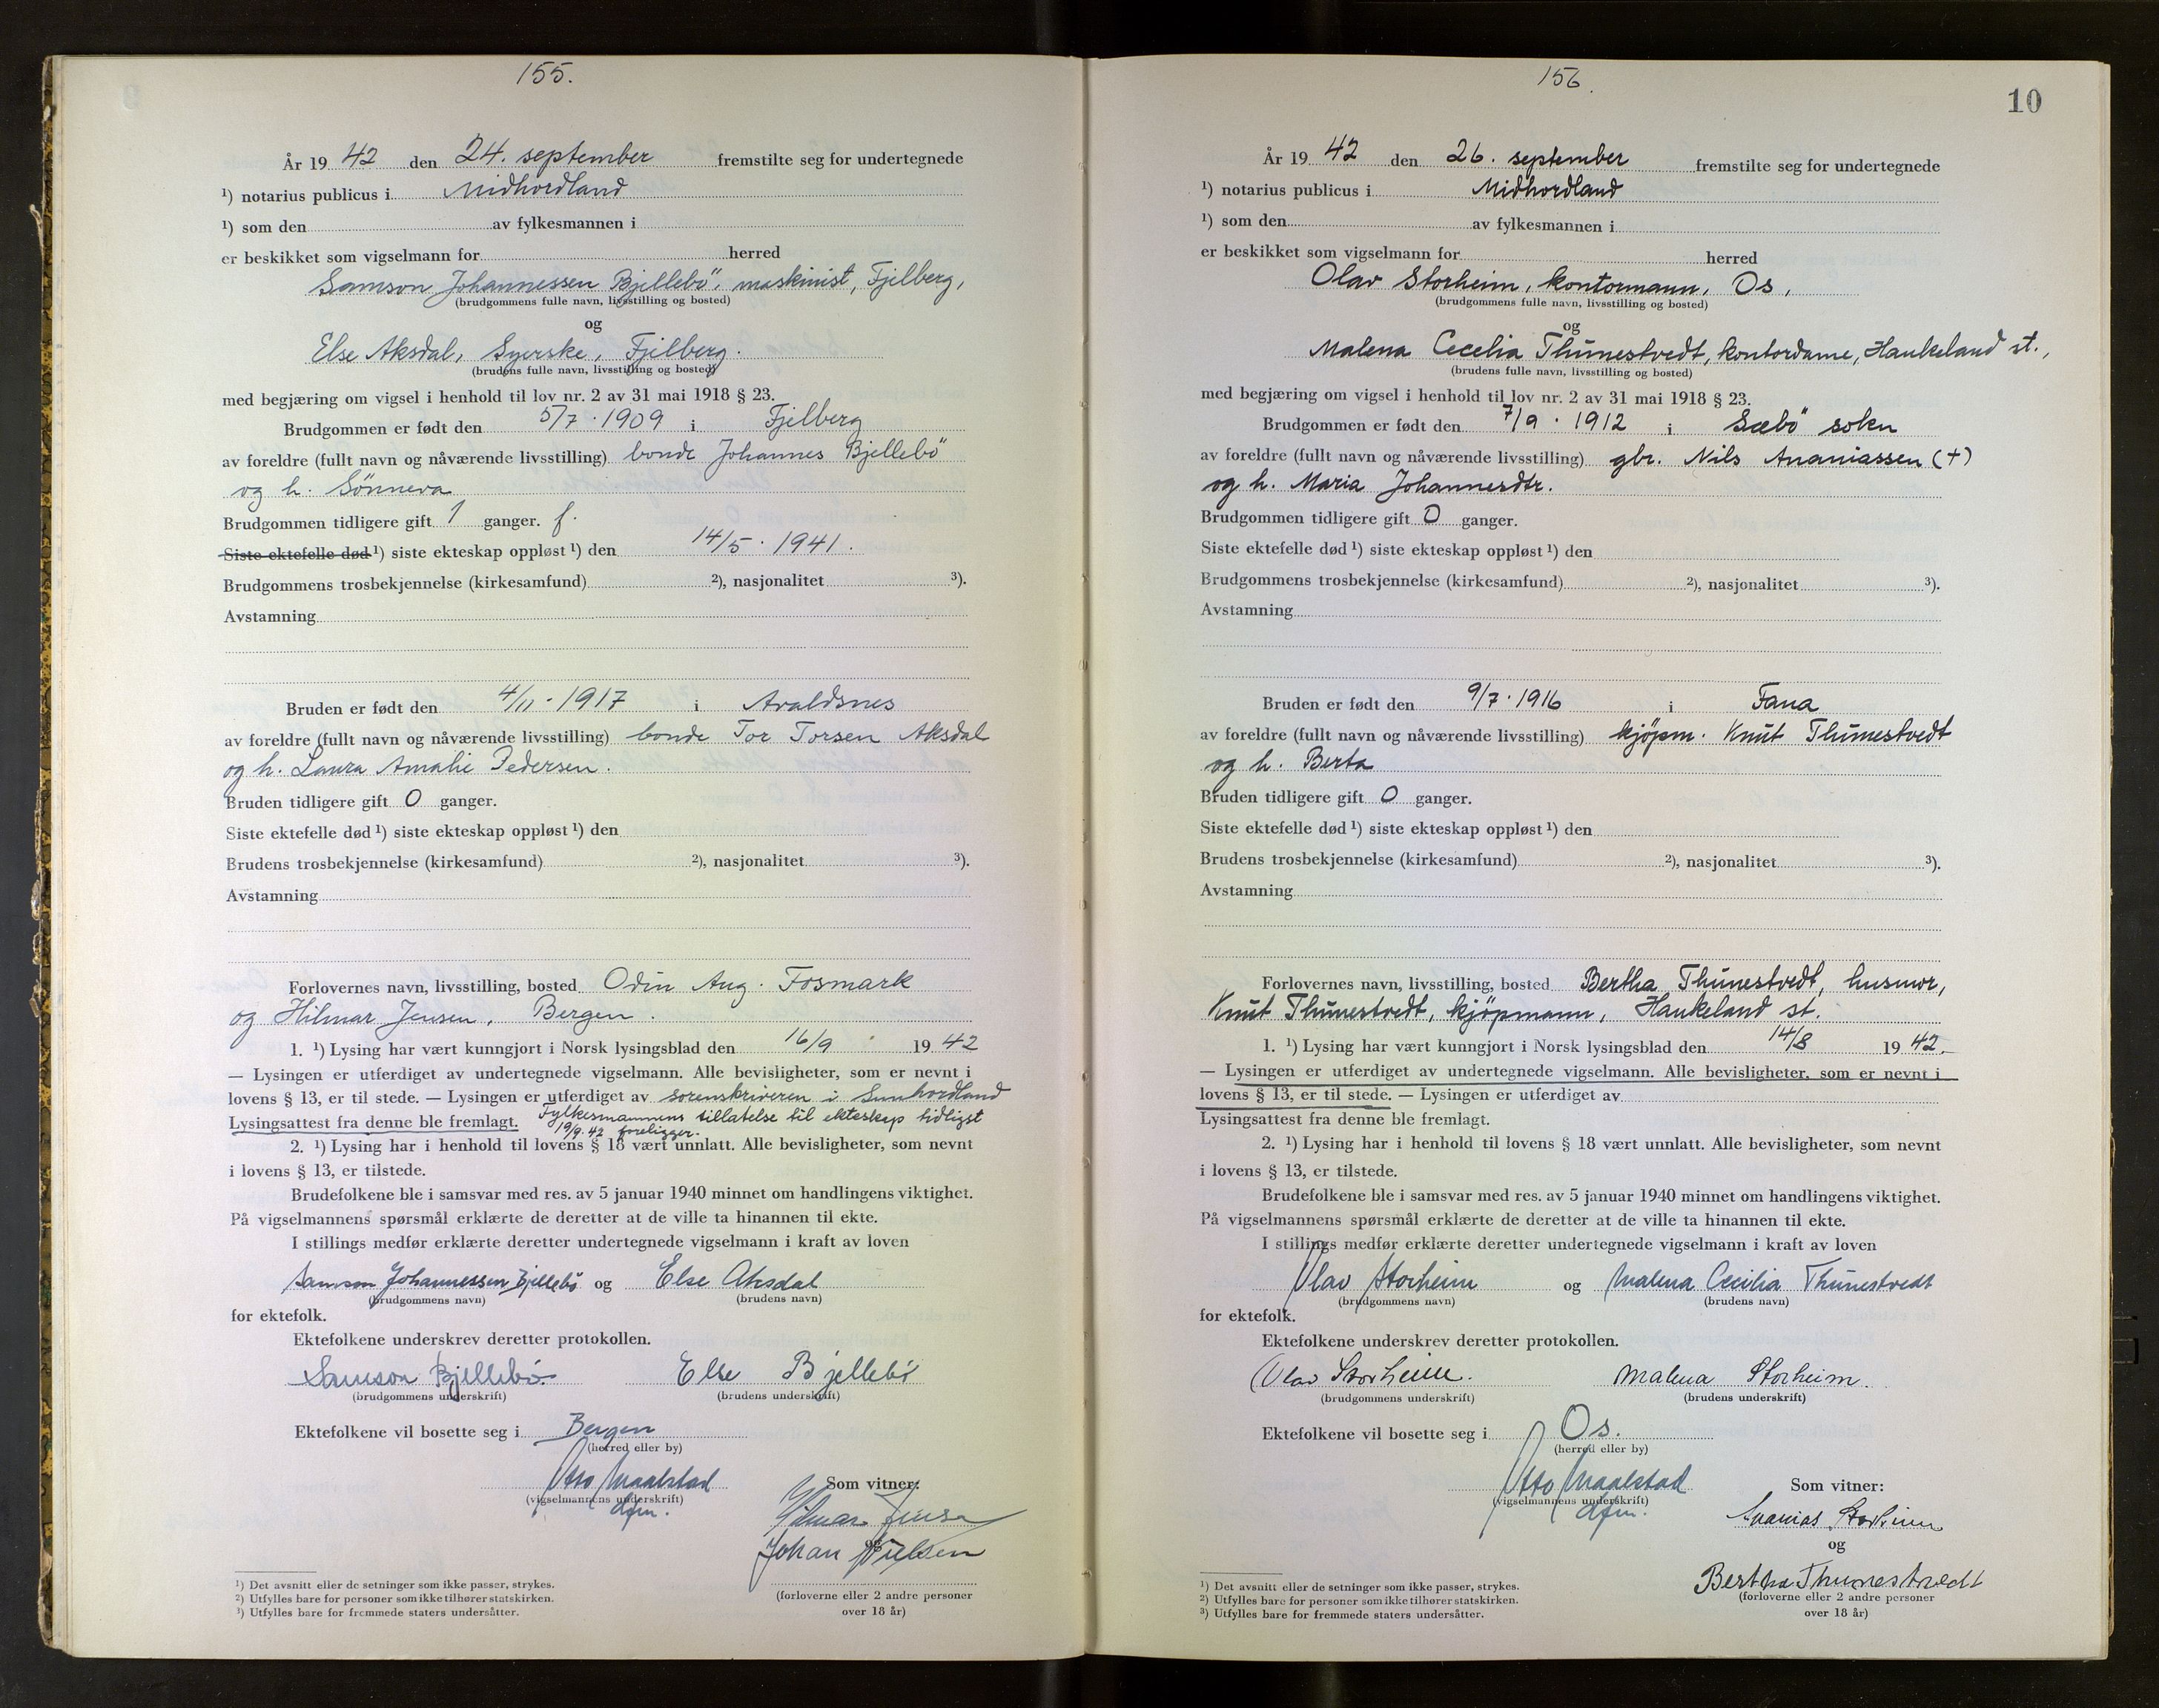 155.
År 19 42 den 24. september fremstilte seg for undertegnede
¹) notarius publicus i Midhordland
¹) som den av fylkesmannen i
er beskikket som vigselmann for herred
Samson Johannessen Bjellebö, maskinist, Fjelberg,
(brudgommens fulle navn, livsstilling og bosted)
og
Else Aksdal, Syerske, Fjelberg.
(brudens fulle navn, livsstilling og bosted)
med begjæring om vigsel i henhold til lov nr. 2 av 31 mai 1918 § 23.
Brudgommen er født den 5/7 · 1909 i Fjelberg
av foreldre (fullt navn og nåværende livsstilling) bonde Johannes Bjellebö
og h. Sönneva
Brudgommen tidligere gift 1 ganger. f.
Siste ektefelle død ¹) siste ekteskap oppløst ¹) den 14/5 · 1941.
Brudgommens trosbekjennelse (kirkesamfund) ²), nasjonalitet ³).
Avstamning
Bruden er født den 4/11 · 1917 i Avaldsnes
av foreldre (fullt navn og nåværende livsstilling) bonde Tor Torsen Aksdal
og h. Laura Amalie Pedersen.
Bruden tidligere gift 0 ganger.
Siste ektefelle død ¹) siste ekteskap oppløst ¹) den
Brudens trosbekjennelse (kirkesamfund) ²), nasjonalitet ³).
Avstamning
Forlovernes navn, livsstilling, bosted Odin Aug. Fosmark
og Hilmar Jensen, Bergen.
1. ¹) Lysing har vært kunngjort i Norsk lysingsblad den 16/9 19 42
— Lysingen er utferdiget av undertegnede vigselmann. Alle bevisligheter, som er nevnt i
lovens § 13, er til stede. — Lysingen er utferdiget av sorenskriveren i Sunnhordland
Lysingsattest fra denne ble fremlagt. Fylkesmannens tillatelse til ekteskap tidligst
19/9.42 foreligger.
2. ¹) Lysing har i henhold til lovens § 18 vært unnlatt. Alle bevisligheter, som nevnt
i lovens § 13, er tilstede.
Brudefolkene ble i samsvar med res. av 5 januar 1940 minnet om handlingens viktighet.
På vigselmannens spørsmål erklærte de deretter at de ville ta hinannen til ekte.
I stillings medfør erklærte deretter undertegnede vigselmann i kraft av loven
Samson Johannessen Bjellebö og Else Aksdal
(brudgommens navn) (brudens navn)
for ektefolk.
Ektefolkene underskrev deretter protokollen.
Samson Bjellebö Else Bjellebö
(brudgommens underskrift) (brudens underskrift)
Ektefolkene vil bosette seg i Bergen
(herred eller by)
Otto Maalstad
(vigselmannens underskrift)
dfm.
Som vitner:
Hilmar Jensen
og
Johan Nielsen
(forloverne eller 2 andre personer
over 18 år)
¹) Det avsnitt eller de setninger som ikke passer, strykes.
²) Utfylles bare for personer som ikke tilhører statskirken.
³) Utfylles bare for fremmede staters undersåtter.
156.
10
År 19 42 den 26. september fremstilte seg for undertegnede
¹) notarius publicus i Midhordland
¹) som den av fylkesmannen i
er beskikket som vigselmann for herred
Olav Storheim, kontormann, Os,
(brudgommens fulle navn, livsstilling og bosted)
og
Malena Cecelia Thunestvedt, kontordame, Haukeland st.,
(brudens fulle navn, livsstilling og bosted)
med begjæring om vigsel i henhold til lov nr. 2 av 31 mai 1918 § 23.
Brudgommen er født den 7/9 · 1912 i Sæbö sokn
av foreldre (fullt navn og nåværende livsstilling) gbr. Nils Ananiassen (+)
og h. Maria Johannesdtr.
Brudgommen tidligere gift 0 ganger.
Siste ektefelle død ¹) siste ekteskap oppløst ¹) den
Brudgommens trosbekjennelse (kirkesamfund) ²), nasjonalitet ³).
Avstamning
Bruden er født den 9/7 · 1916 i Fana
av foreldre (fullt navn og nåværende livsstilling) kjöpm. Knut Thunestvedt
og h. Berta
Bruden tidligere gift 0 ganger.
Siste ektefelle død ¹) siste ekteskap oppløst ¹) den
Brudens trosbekjennelse (kirkesamfund) ²), nasjonalitet ³).
Avstamning
Forlovernes navn, livsstilling, bosted Bertha Thunestvedt, husmor,
Knut Thunestvedt, kjöpmann, Haukeland st.
1. ¹) Lysing har vært kunngjort i Norsk lysingsblad den 14/8 19 42.
— Lysingen er utferdiget av undertegnede vigselmann. Alle bevisligheter, som er nevnt i
lovens § 13, er til stede. — Lysingen er utferdiget av
Lysingsattest fra denne ble fremlagt.
2. ¹) Lysing har i henhold til lovens § 18 vært unnlatt. Alle bevisligheter, som nevnt
i lovens § 13, er tilstede.
Brudefolkene ble i samsvar med res. av 5 januar 1940 minnet om handlingens viktighet.
På vigselmannens spørsmål erklærte de deretter at de ville ta hinannen til ekte.
I stillings medfør erklærte deretter undertegnede vigselmann i kraft av loven
Olav Storheim og Malena Cecilia Thunestvedt
(brudgommens navn) (brudens navn)
for ektefolk.
Ektefolkene underskrev deretter protokollen.
Olav Storheim. Malena Storheim.
(brudgommens underskrift) (brudens underskrift)
Ektefolkene vil bosette seg i Os.
(herred eller by)
Otto Maalstad
(vigselmannens underskrift)
dfm.
Som vitner:
Ananias Storheim
og
Bertha Thunestvedt
(forloverne eller 2 andre personer
over 18 år)
¹) Det avsnitt eller de setninger som ikke passer, strykes.
²) Utfylles bare for personer som ikke tilhører statskirken.
³) Utfylles bare for fremmede staters undersåtter.